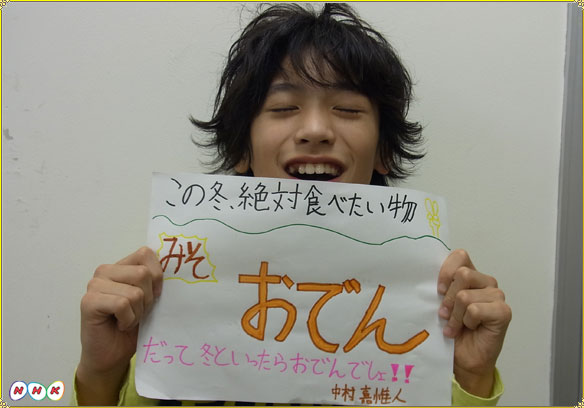 この冬、絶対食べたい物
みそ
おでん
だって 冬といったらおでんでしょ!!
中村嘉惟人
NHK